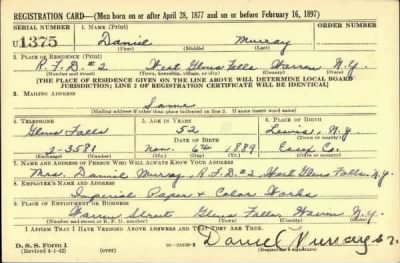 REGISTRATION CARD—(Men born on or after April 28, 1877 and on or before February 16, 1897)
SERIAL NUMBER 1. NAME (Print)
U 1375 Daniel Murray
(First) (Middle) (Last)
2. PLACE OF RESIDENCE (Print)
R.F.D. #2 West Glens Falls Warren N.Y.
(Number and street) (Town, township, village, or city) (County) (State)
[THE PLACE OF RESIDENCE GIVEN ON THE LINE ABOVE WILL DETERMINE LOCAL BOARD
JURISDICTION; LINE 2 OF REGISTRATION CERTIFICATE WILL BE IDENTICAL]
3. MAILING ADDRESS
Same
[Mailing address if other than place indicated on line 2. If same insert word same]
4. TELEPHONE 5. AGE IN YEARS 6. PLACE OF BIRTH
Glens Falls 52 Lewis, N.Y.
DATE OF BIRTH (Town or county)
2-3581 Nov. 6th 1889 Essex Co.
(Exchange) (Number) (Mo.) (Day) (Yr.) (State or country)
7. NAME AND ADDRESS OF PERSON WHO WILL ALWAYS KNOW YOUR ADDRESS
Mrs. Daniel Murray, R.F.D. #2, West Glens Falls, N.Y.
8. EMPLOYER'S NAME AND ADDRESS
Imperial Paper & Color Works
9. PLACE OF EMPLOYMENT OR BUSINESS
Warren Street Glens Falls, Warren N.Y.
(Number and street or R.F.D. number) (Town) (County) (State)
I AFFIRM THAT I HAVE VERIFIED ABOVE ANSWERS AND THAT THEY ARE TRUE.
D. S. S. Form 1
(Revised 4-1-42) (over) Daniel Murray
(Registrant's signature)